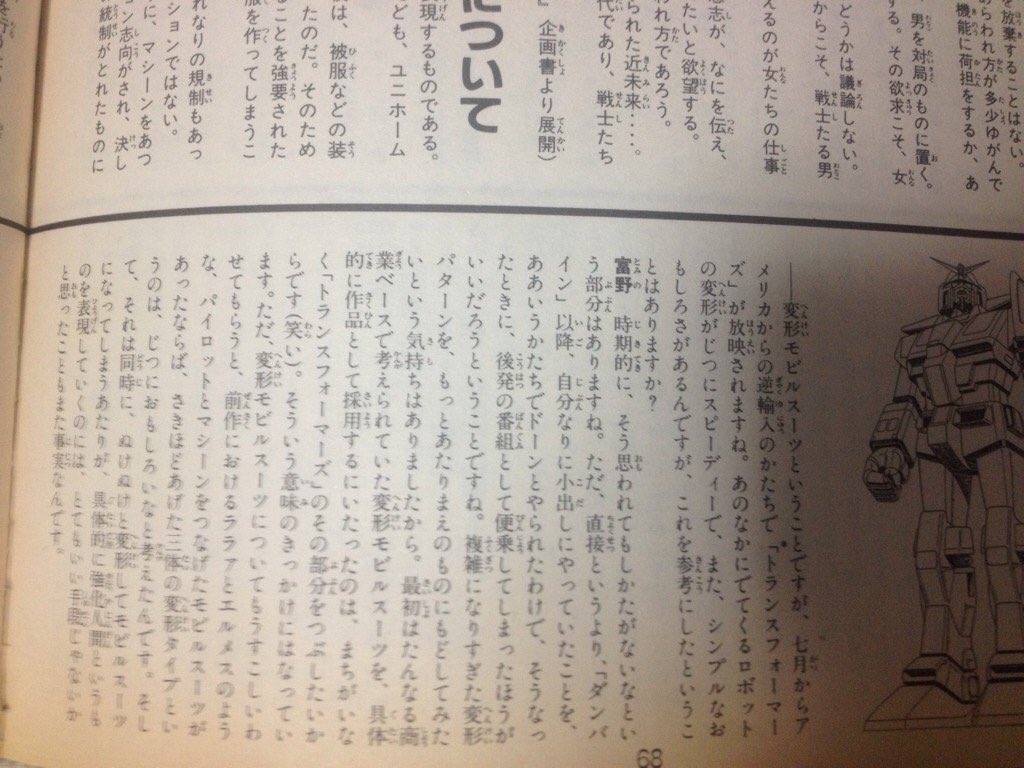 を放棄することはな
あらわれ方が多少ゆがんで
機能に荷担をするか、あ
男を対局のものに置く。
する。その欲求こそ、女
どうかは議論しない。
からこそ、戦士たる男
えるのが女たちの仕事
志が、なにを伝え、
たいと欲望する。
われ方であろう。
られた近未来‥‥。
代であり、戦士たち
』企画書より展開)
について
現するものである。
ども、ユニホーム
は、被服などの装
たのだ。そのため
ることを強要された
服を作ってしまうこ
れなりの規制もあっ
ションではない。
に、マシーンをあつ
ション志向がされ、決し
統制がとれたものに
――変形モビルスーツということですが、七月からア
メリカからの逆輸入のかたちで『トランスフォーマー
ズ』が放映されますね。あのなかにでてくるロボット
の変形がじつにスピーディーで、また、シンプルなお
もしろさがあるんですが、これを参考にしたというこ
とはありますか？
富野　時期的に、そう思われてもしかたがないなとい
う部分はありますね。ただ、直接というより、『ダンバ
イン』以降、自分なりに小出しにやっていたことを、
ああいうかたちでドーンとやられたわけで、そうなっ
たときに、後発の番組として便乗してしまったほうが
いいだろうということですね。複雑になりすぎた変形
パターンを、もっとあたりまえのものにもどしてみた
いという気持ちはありましたから。最初はたんなる商
業ベースで考えられていた変形モビルスーツを、具体
的に作品として採用するにいたったのは、まちがいな
く『トランスフォーマーズ』のその部分をつぶしたいか
らです(笑い)。そういう意味のきっかけにはなってい
ます。ただ、変形モビルスーツについてもうすこしいわ
せてもらうと、前作におけるララァとエルメスのよう
な、パイロットとマシーンをつなげたモビルスーツが
あったならば、さきほどあげた三体の変形タイプとい
うのは、じつにおもしろいなと考えたんです。そし
て、それは同時に、ぬけぬけと変形してモビルスーツ
になってしまうあたりが、具体的に強化人間というも
のを表現していくのには、とてもいい手段じゃないか
と思ったこともまた事実なんです。
68